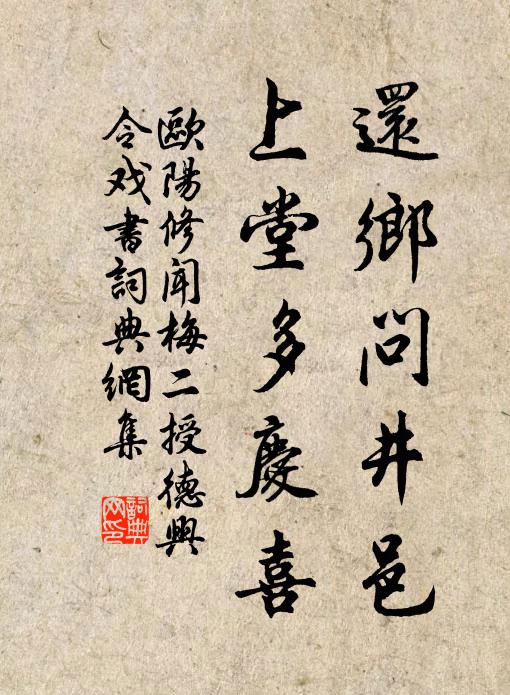 還鄉問井邑
上堂多慶喜
歐陽修聞梅二授德興
令戏書詞典網集
詞典网印